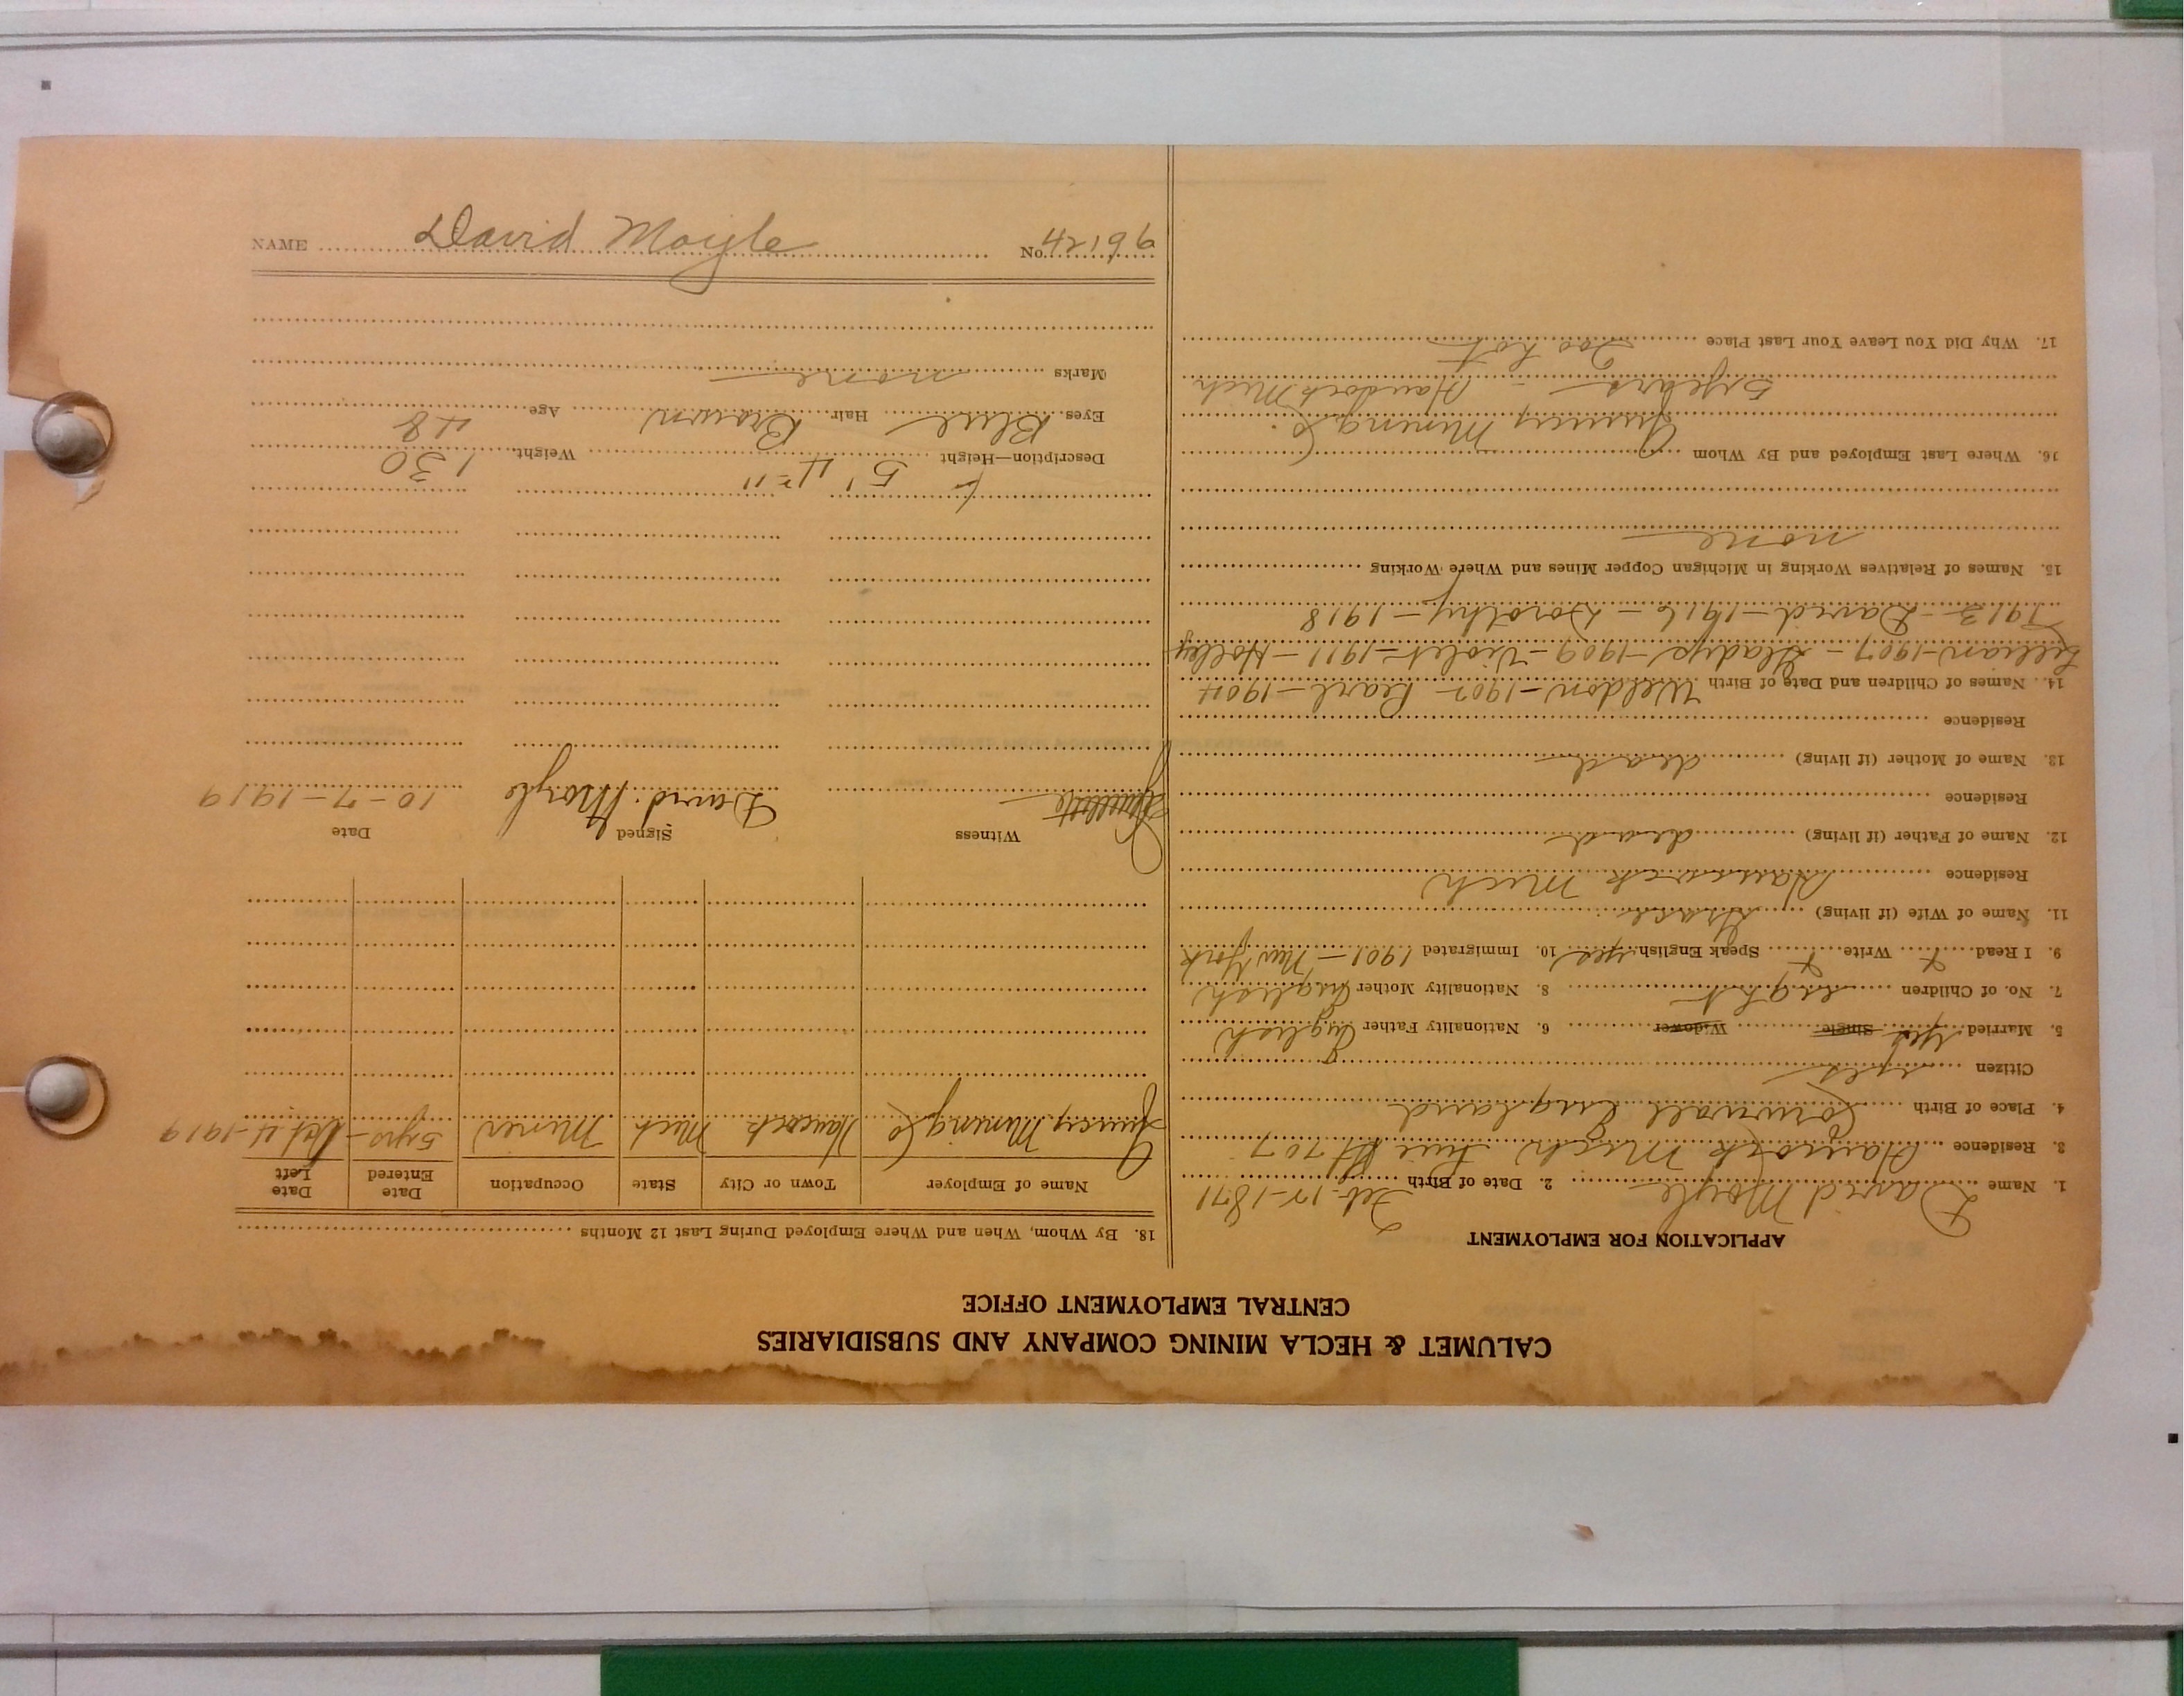 CALUMET & HECLA MINING COMPANY AND SUBSIDIARIES
CENTRAL EMPLOYMENT OFFICE
APPLICATION FOR EMPLOYMENT
1. Name David Moyle 2. Date of Birth Feb-12-1871
3. Residence Hancock Mich
4. Place of Birth Cornwall England
Citizen yes
5. Married yes Single Widower 6. Nationality Father English
7. No. of Children eight 8. Nationality Mother English
9. I Read Write Speak English yes 10. Immigrated 1901-New York
11. Name of Wife (if living) Grace
Residence Hancock Mich
12. Name of Father (if living) dead
Residence
13. Name of Mother (if living) dead
Residence
14. Names of Children and Date of Birth Weldon-1902- Pearl-1904
Lillian-1907-Gladys-1909-Violet-1911-Holley
1913-David-1916-Dorothy-1918
15. Names of Relatives Working in Michigan Copper Mines and Where Working
none
16. Where Last Employed and By Whom
Quincy Mining Co.
5 years - Hancock Mich
17. Why Did You Leave Your Last Place
Too hot
18. By Whom, When and Where Employed During Last 12 Months
Name of Employer Town or City State Occupation Date Entered Date Left
Quincy Mining Co Hancock Mich Miner 5 yrs- Oct 4-1919
Witness Signed Date
David Moyle 10-7-1919
Description—Height 5' 4½" Weight 130
Eyes Blue Hair Brown Age 48
Marks none
NAME David Moyle No. 42196